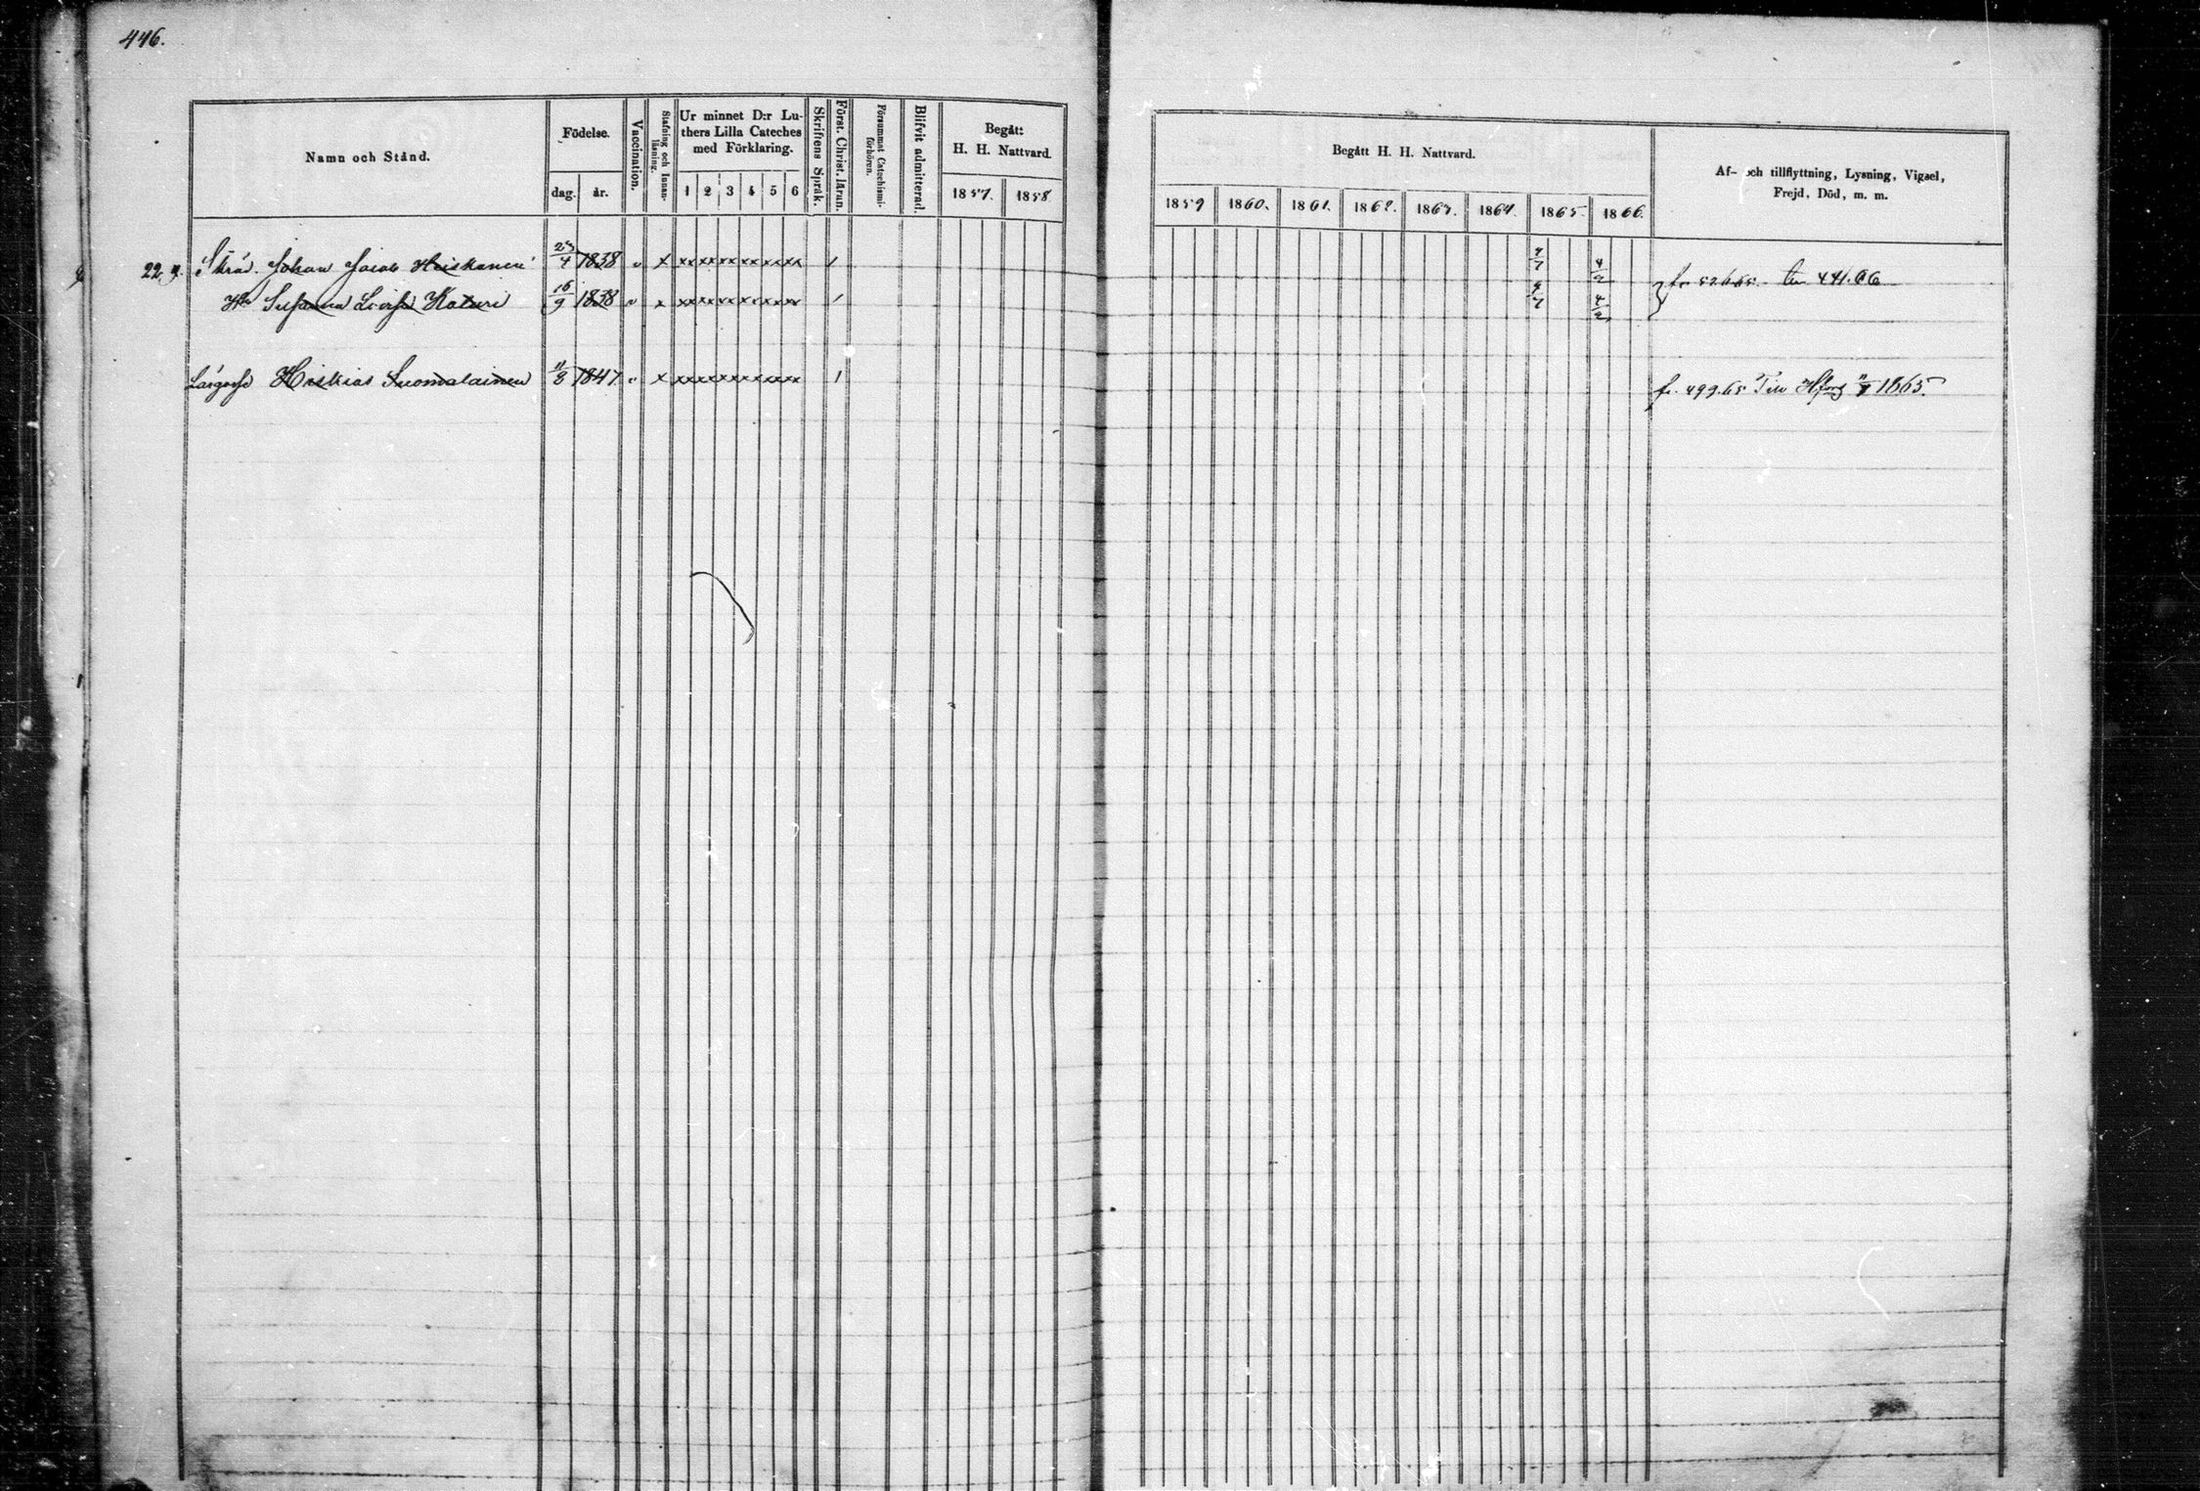 446.
Namn och Stånd.
Födelse.
dag. år.
Vaccination.
Stafning och Innanläsning.
Ur minnet D:r Luthers Lilla Cateches med Förklaring.
1 2 3 4 5 6
Skriftens Språk.
Först. Christ. läran.
Försummat Catechismiförhören.
Blifvit admitterad.
Begått H. H. Nattvard.
1857. 1858
Begått H. H. Nattvard.
1859 1860. 1861. 1862. 1863. 1864. 1865. 1866.
Af- och tillflyttning, Lysning, Vigsel, Frejd, Död, m. m.
22 Skräd. Johan Jacob Heiskanen 23/4 1838 v x xxxxxxxxxxxx / 9/7 4/2
Hu Susanna Lovisa Katuri 16/9 1838 v x xxxxxxxxxxxx / 9/7 4/2 } fr. 526.65. 441.66
Lärgosse Hiskias Suomalainen 11/8 1847 v x xxxxxxxxxxxx 1 fr. 499.65 Till Hfors 1865.